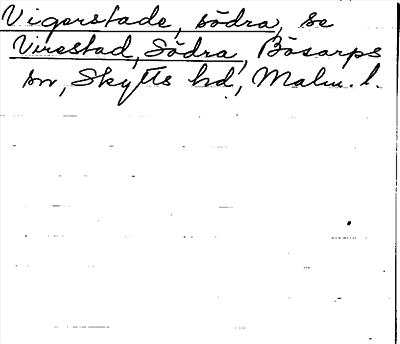 Vigerstade, södra, se
Virestad, Södra, Bösarps
sn, Skytts hd, Malm. l.